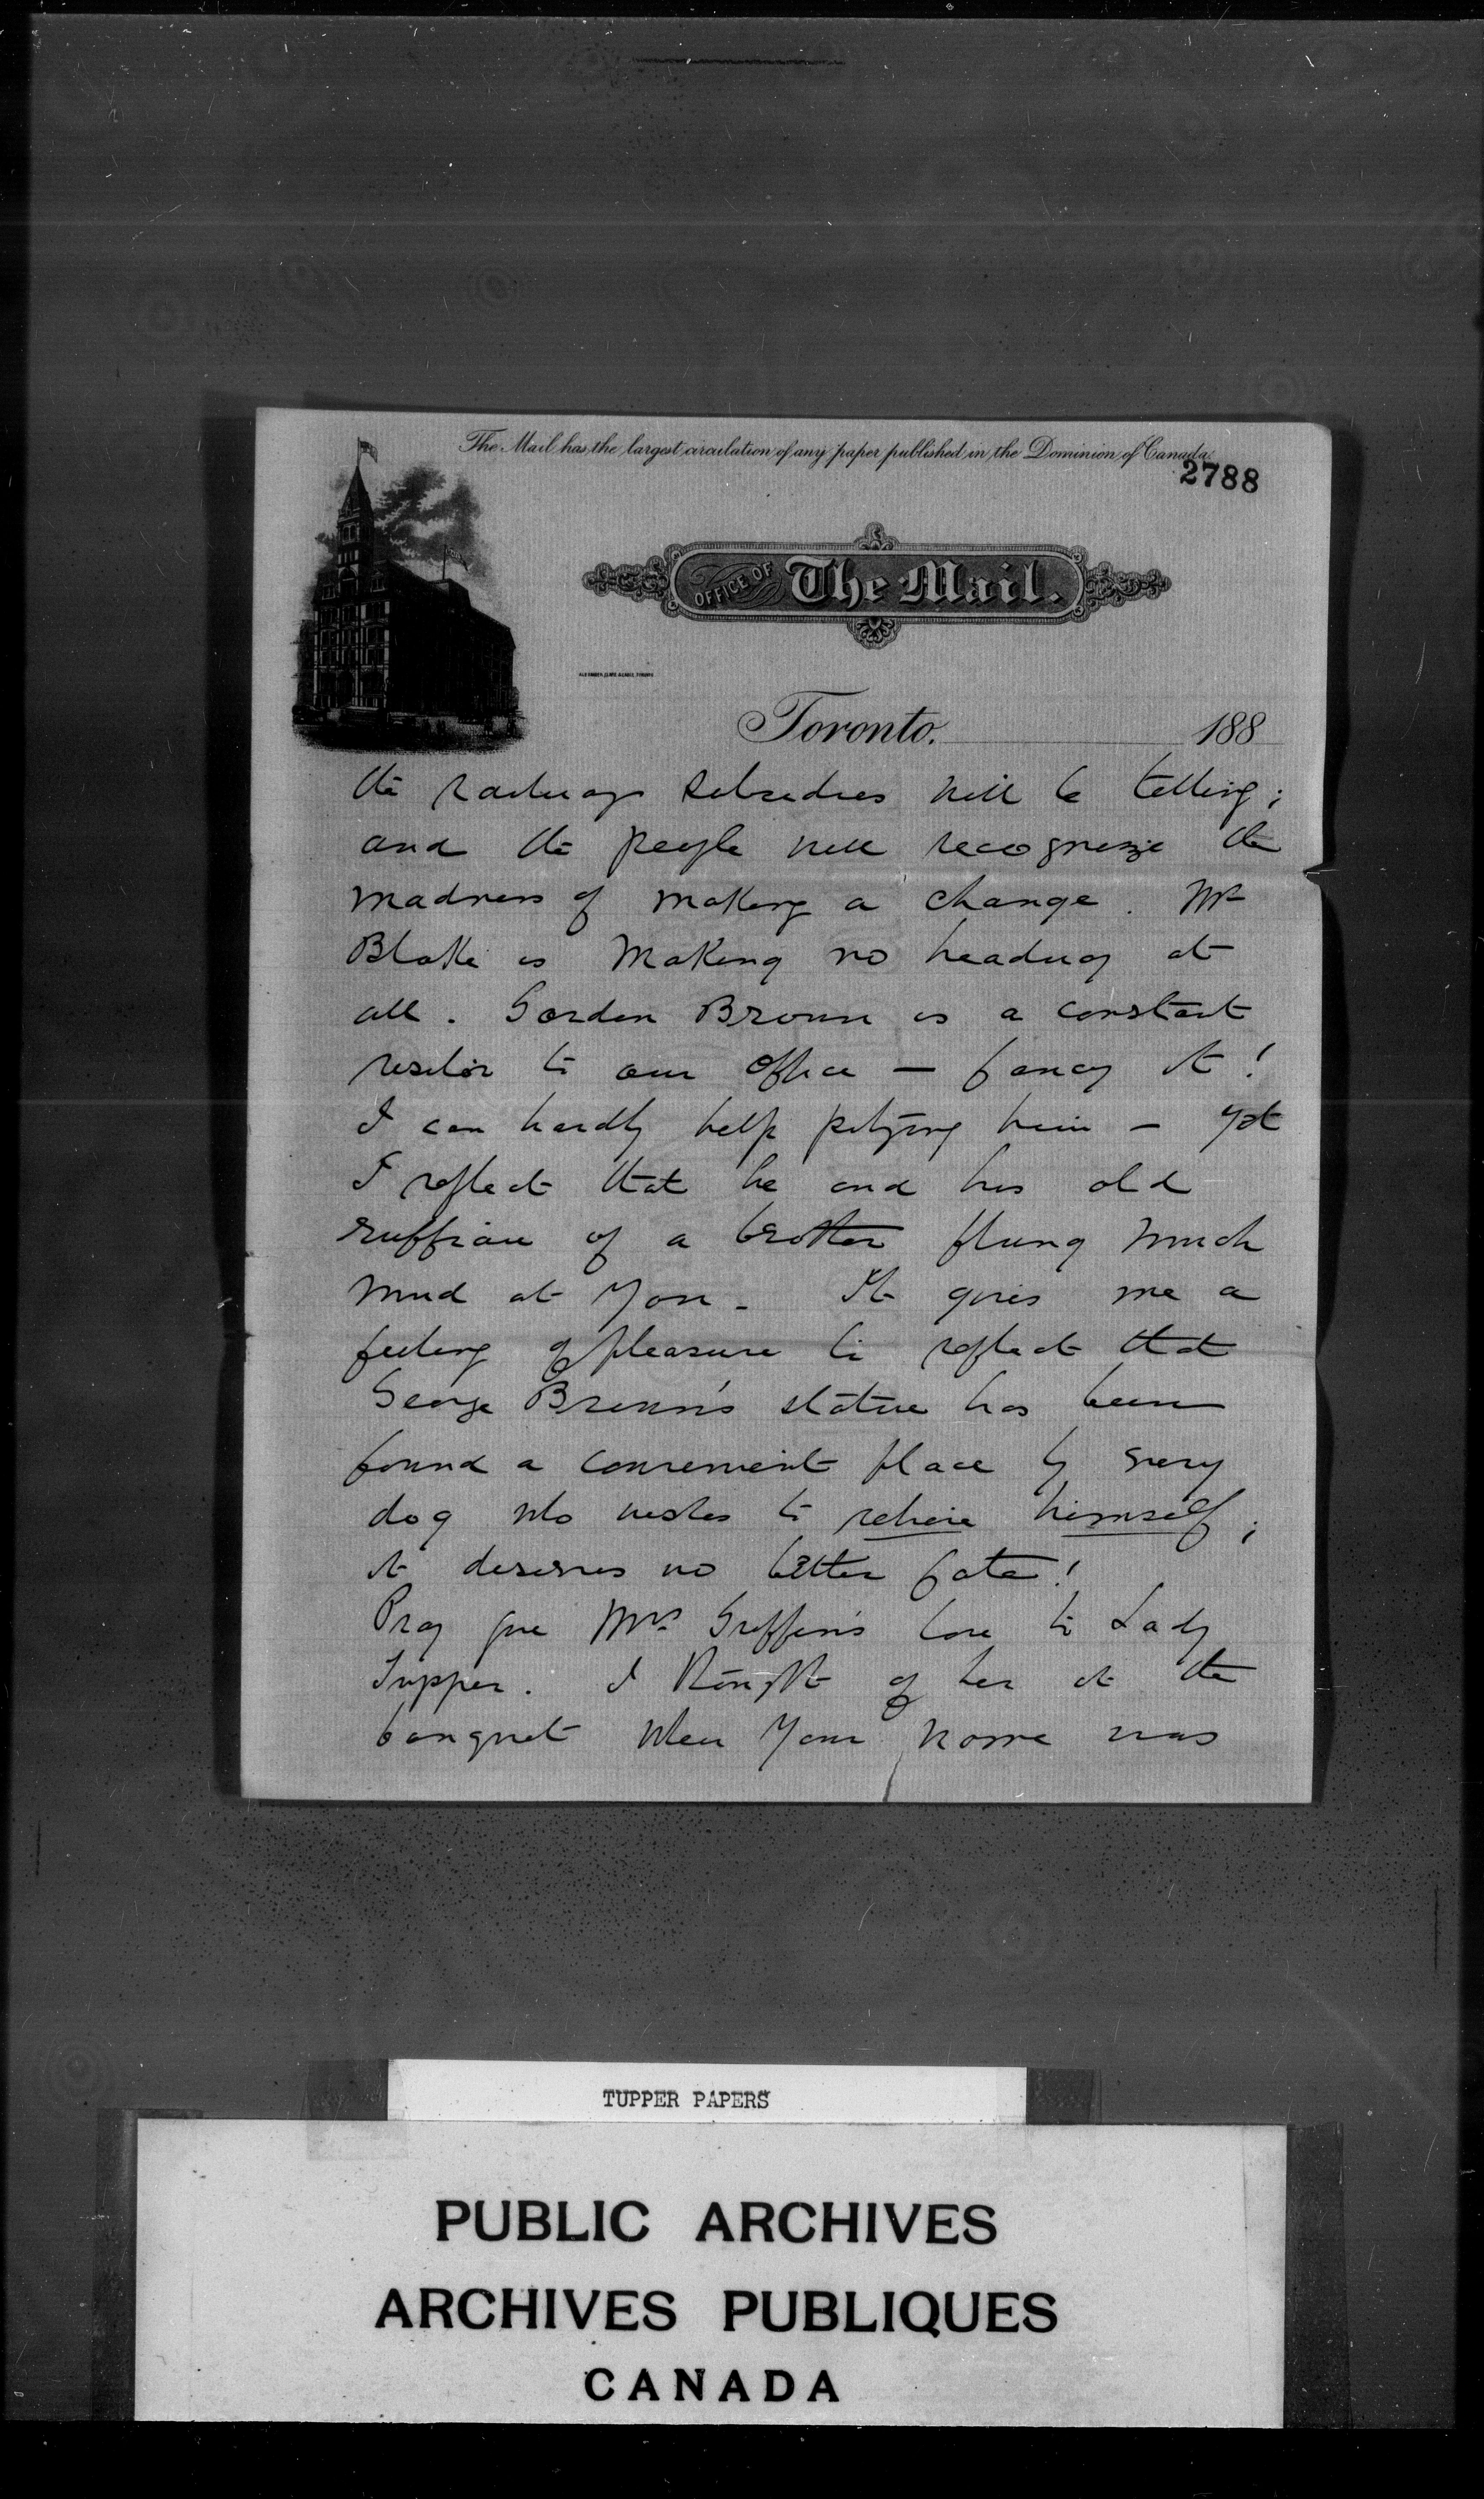 The Mail has the largest circulation of any paper published in the Dominion of Canada.
2788
OFFICE OF The Mail.
Toronto. 188
the railway subsidies will be telling;
and the people will recognize the
madness of making a change. Mr
Blake is making no headway at
all. Gordon Brown is a constant
visitor to our office — fancy it!
I can hardly help pitying him — yet
I reflect that he and his old
ruffian of a brother flung much
mud at you. It gives me a
feeling of pleasure to reflect that
George Brown's statue has been
found a convenient place by every
dog who wishes to relieve himself;
it deserves no better fate!
Pray give Mrs Griffin's love to Lady
Tupper. I thought of her at the
banquet when your name was
TUPPER PAPERS
PUBLIC ARCHIVES
ARCHIVES PUBLIQUES
CANADA